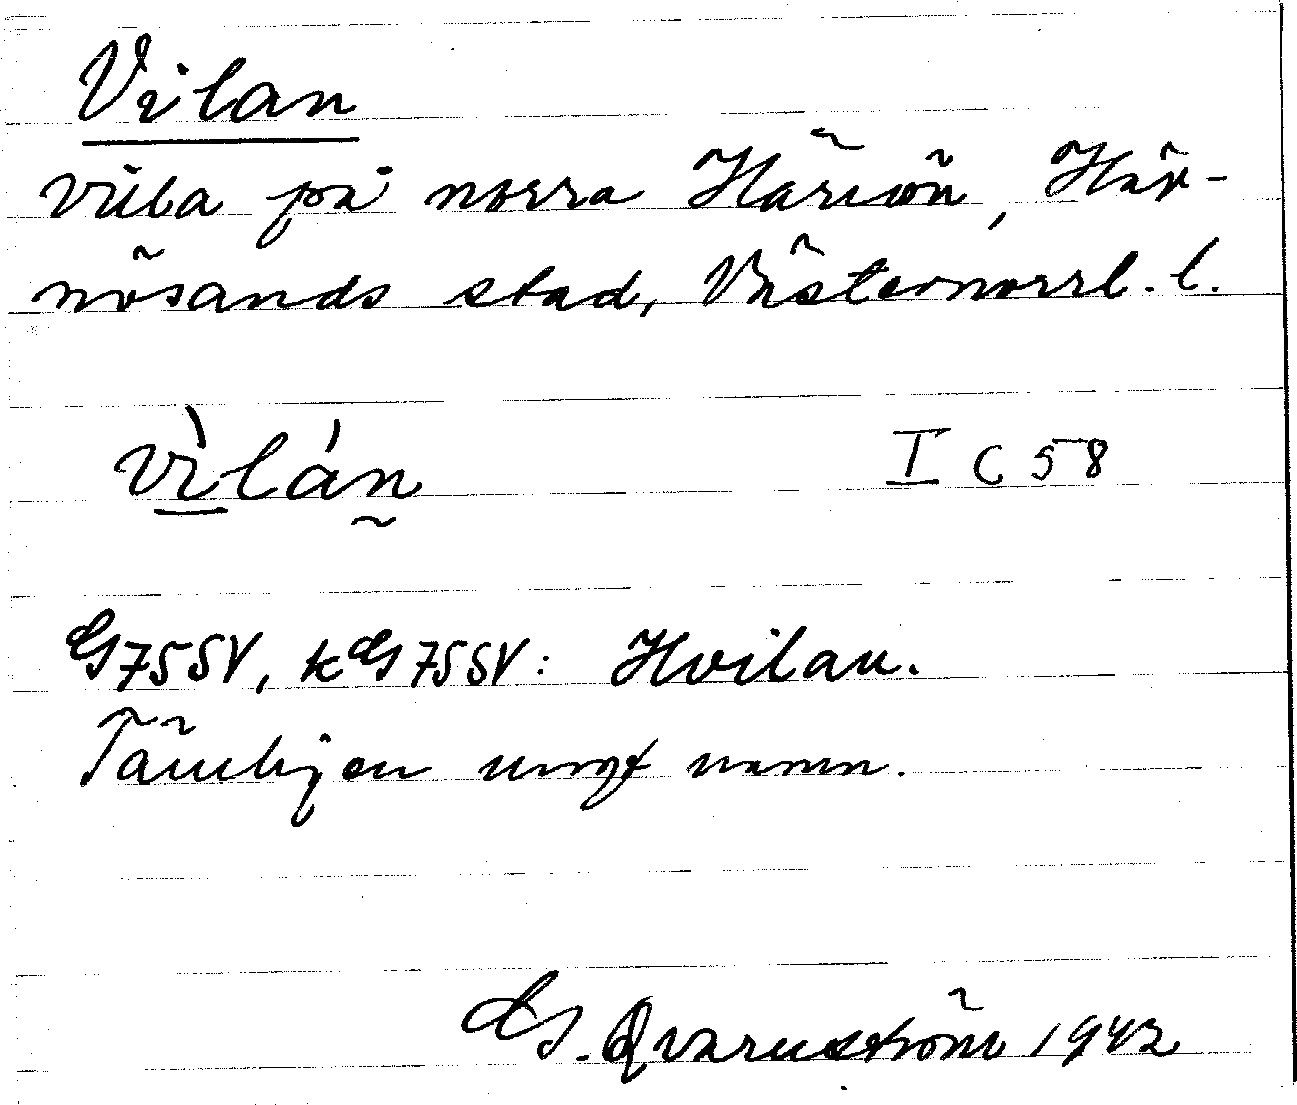 Vilan
villa på norra Härnön, Här-
nösands stad, Västernorrl. l.
vìlán I C 58
G75SV, kG75SV: Hvilan.
Tämligen ungt namn.
G. Qvarnström 1942